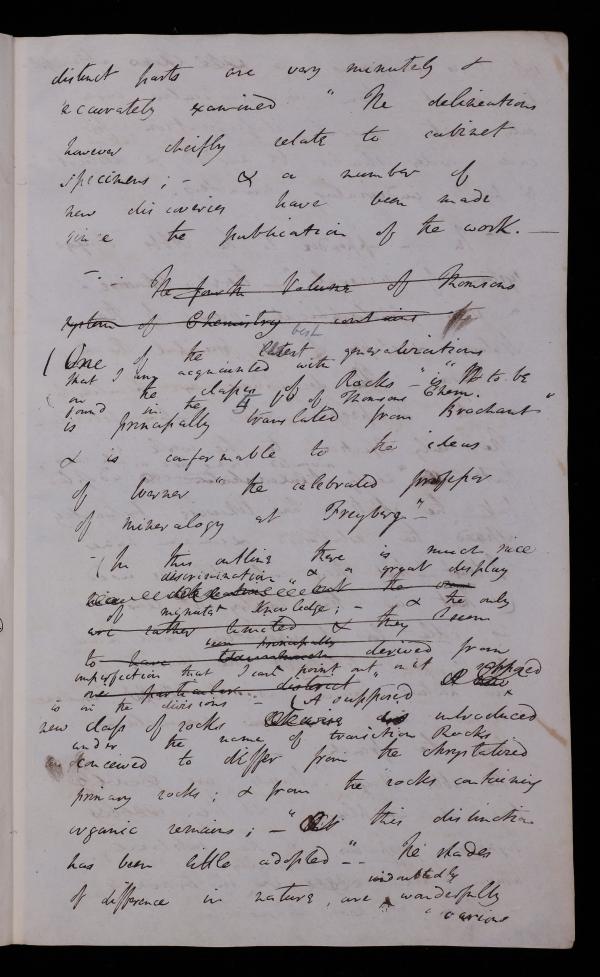 distinct parts are very minutely &
accurately examined " The delineations
however cheifly relate to cabinet
specimens; - & a number of
new discoveries have been made
since the publication of the work. —
The fourth Volume of Thomsons
system of Chemistry contains the
best
(One of the latest generalizations
that I am acquainted with
on the classes of Rocks - " is to be
found in the 4 V of Thomsons Chem.
is principally translated from Brochant "
& is conformable to the ideas
of Werner " the celebrated professor
of mineralogy at Freyberg " -
- (In this outline there is much nice
discrimination & a great display
but the
of minute knowledge; - & the only
are rather limited & they seem
principally
to have derived from
imperfection that I can point out " in it
one particular district "
is in the divisions - (A supposed
new class of rocks introduced
under the name of transition Rocks
conceived to differ from the chrystalized
primary rocks; & from the rocks containing
organic remains; - " But this distinction
has been little adopted " - The shades
undoubtedly
of difference in nature, are wonderfully
" various